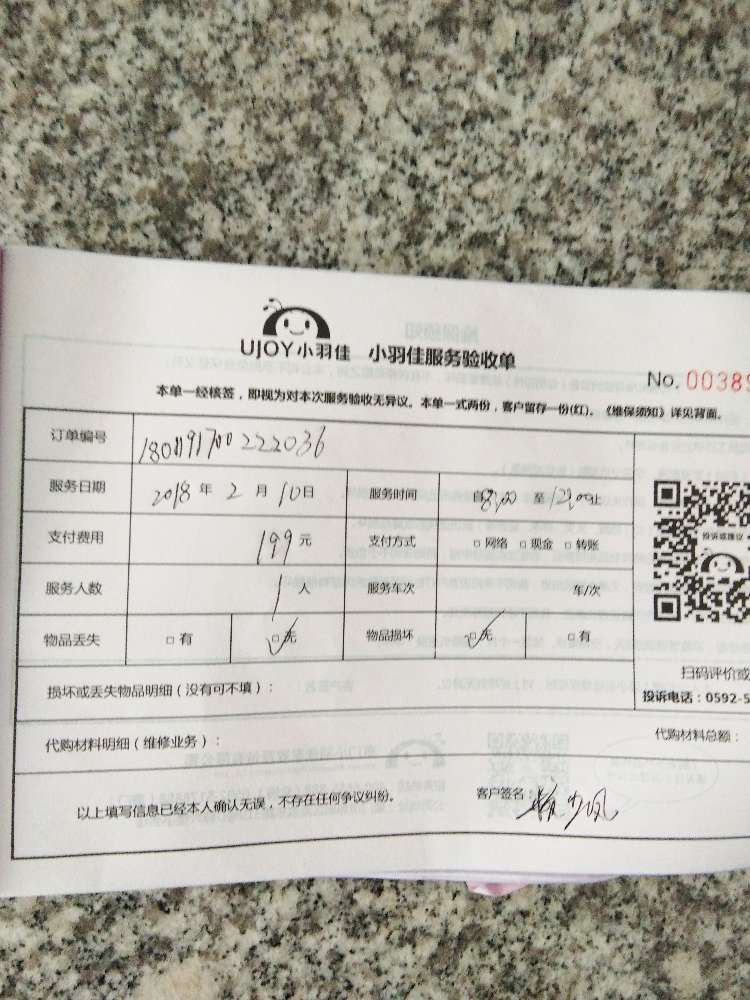 UJOY小羽佳 小羽佳服务验收单
No. 00389
本单一经核签，即视为对本次服务验收无异议。本单一式两份，客户留存一份(红)。《维保须知》详见背面。
订单编号 1801191700222036
服务日期 2018 年 2 月 10 日 服务时间 自 8:00 至 12:00 止
支付费用 199 元 支付方式 □ 网络 □ 现金 □ 转账
投诉或建议
服务人数 1 人 服务车次 车/次
物品丢失 □ 有 □ 无 物品损坏 □ 无 □ 有
扫码评价或
损坏或丢失物品明细（没有可不填）：
投诉电话：0592-5
代购材料明细（维修业务）：
代购材料总额：
以上填写信息已经本人确认无误，不存在任何争议纠纷。 客户签名：